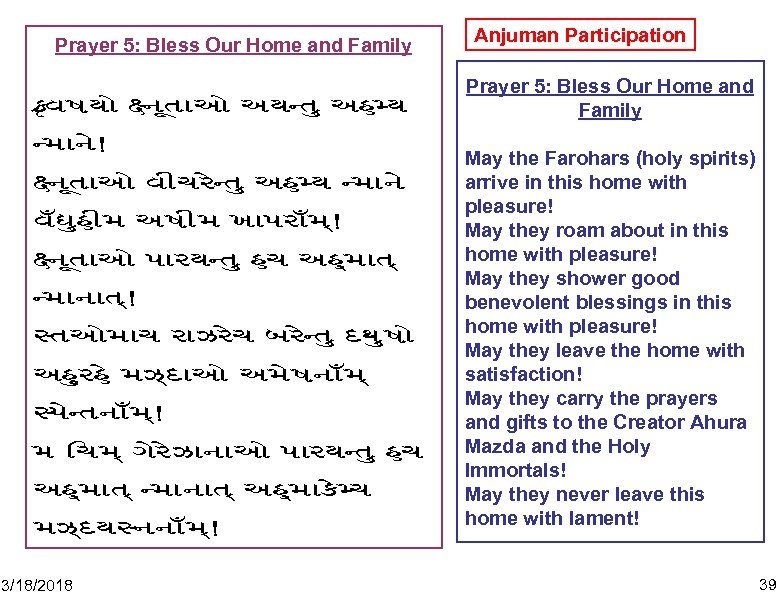 Prayer 5: Bless Our Home and Family
ક્ષ્નૂતાઓ અયન્તુ અહ્મ્ય
ન્માને!
ક્ષ્નૂતાઓ વીચરેન્તુ અહ્મ્ય ન્માને
વઁઘુહીમ અષીમ ખાપરાઁમ્!
ક્ષ્નૂતાઓ પારયન્તુ હચ અહ્માત્
ન્માનાત્!
સ્તઓમાચ રાઝરેચ બરેન્તુ દથુષો
અહુરહે મઝ્દાઓ અમેષનાઁમ્
સ્પેન્તનાઁમ્!
મ ચિમ્ ગેરેઝાનાઓ પારયન્તુ હચ
અહ્માત્ ન્માનાત્ અહ્માકેમ્ચ
મઝ્દયસ્નનાઁમ્!
Anjuman Participation
Prayer 5: Bless Our Home and
Family
May the Farohars (holy spirits)
arrive in this home with
pleasure!
May they roam about in this
home with pleasure!
May they shower good
benevolent blessings in this
home with pleasure!
May they leave the home with
satisfaction!
May they carry the prayers
and gifts to the Creator Ahura
Mazda and the Holy
Immortals!
May they never leave this
home with lament!
3/18/2018
39